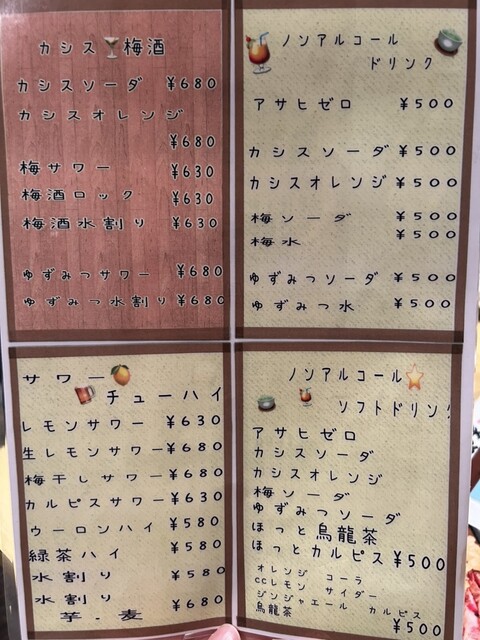 カシス梅酒
カシスソーダ ¥680
カシスオレンジ
¥680
梅サワー ¥630
梅酒ロック ¥630
梅酒水割り ¥630
ゆずみつサワー ¥680
ゆずみつ水割り ¥680
ノンアルコール
ドリンク
アサヒゼロ ¥500
カシスソーダ ¥500
カシスオレンジ ¥500
梅ソーダ ¥500
梅水 ¥500
ゆずみつソーダ ¥500
ゆずみつ水 ¥500
サワー
チューハイ
レモンサワー ¥630
生レモンサワー ¥680
梅干しサワー ¥680
カルピスサワー ¥630
ウーロンハイ ¥580
緑茶ハイ ¥580
水割り ¥580
水割り
芋 麦 ¥680
ノンアルコール
ソフトドリンク
アサヒゼロ
カシスソーダ
カシスオレンジ
梅ソーダ
ゆずみつソーダ
ほっと烏龍茶
ほっとカルピス ¥500
オレンジ コーラ
CCレモン サイダー
ジンジャエール カルピス
烏龍茶
¥500